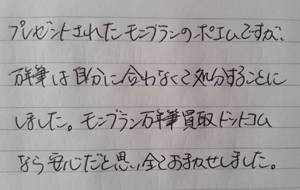 プレゼントされたモンブランのポエムですが、
万年筆は自分に合わなくて処分することに
しました。モンブラン万年筆買取ドットコム
なら安心だと思い全ておまかせしました。